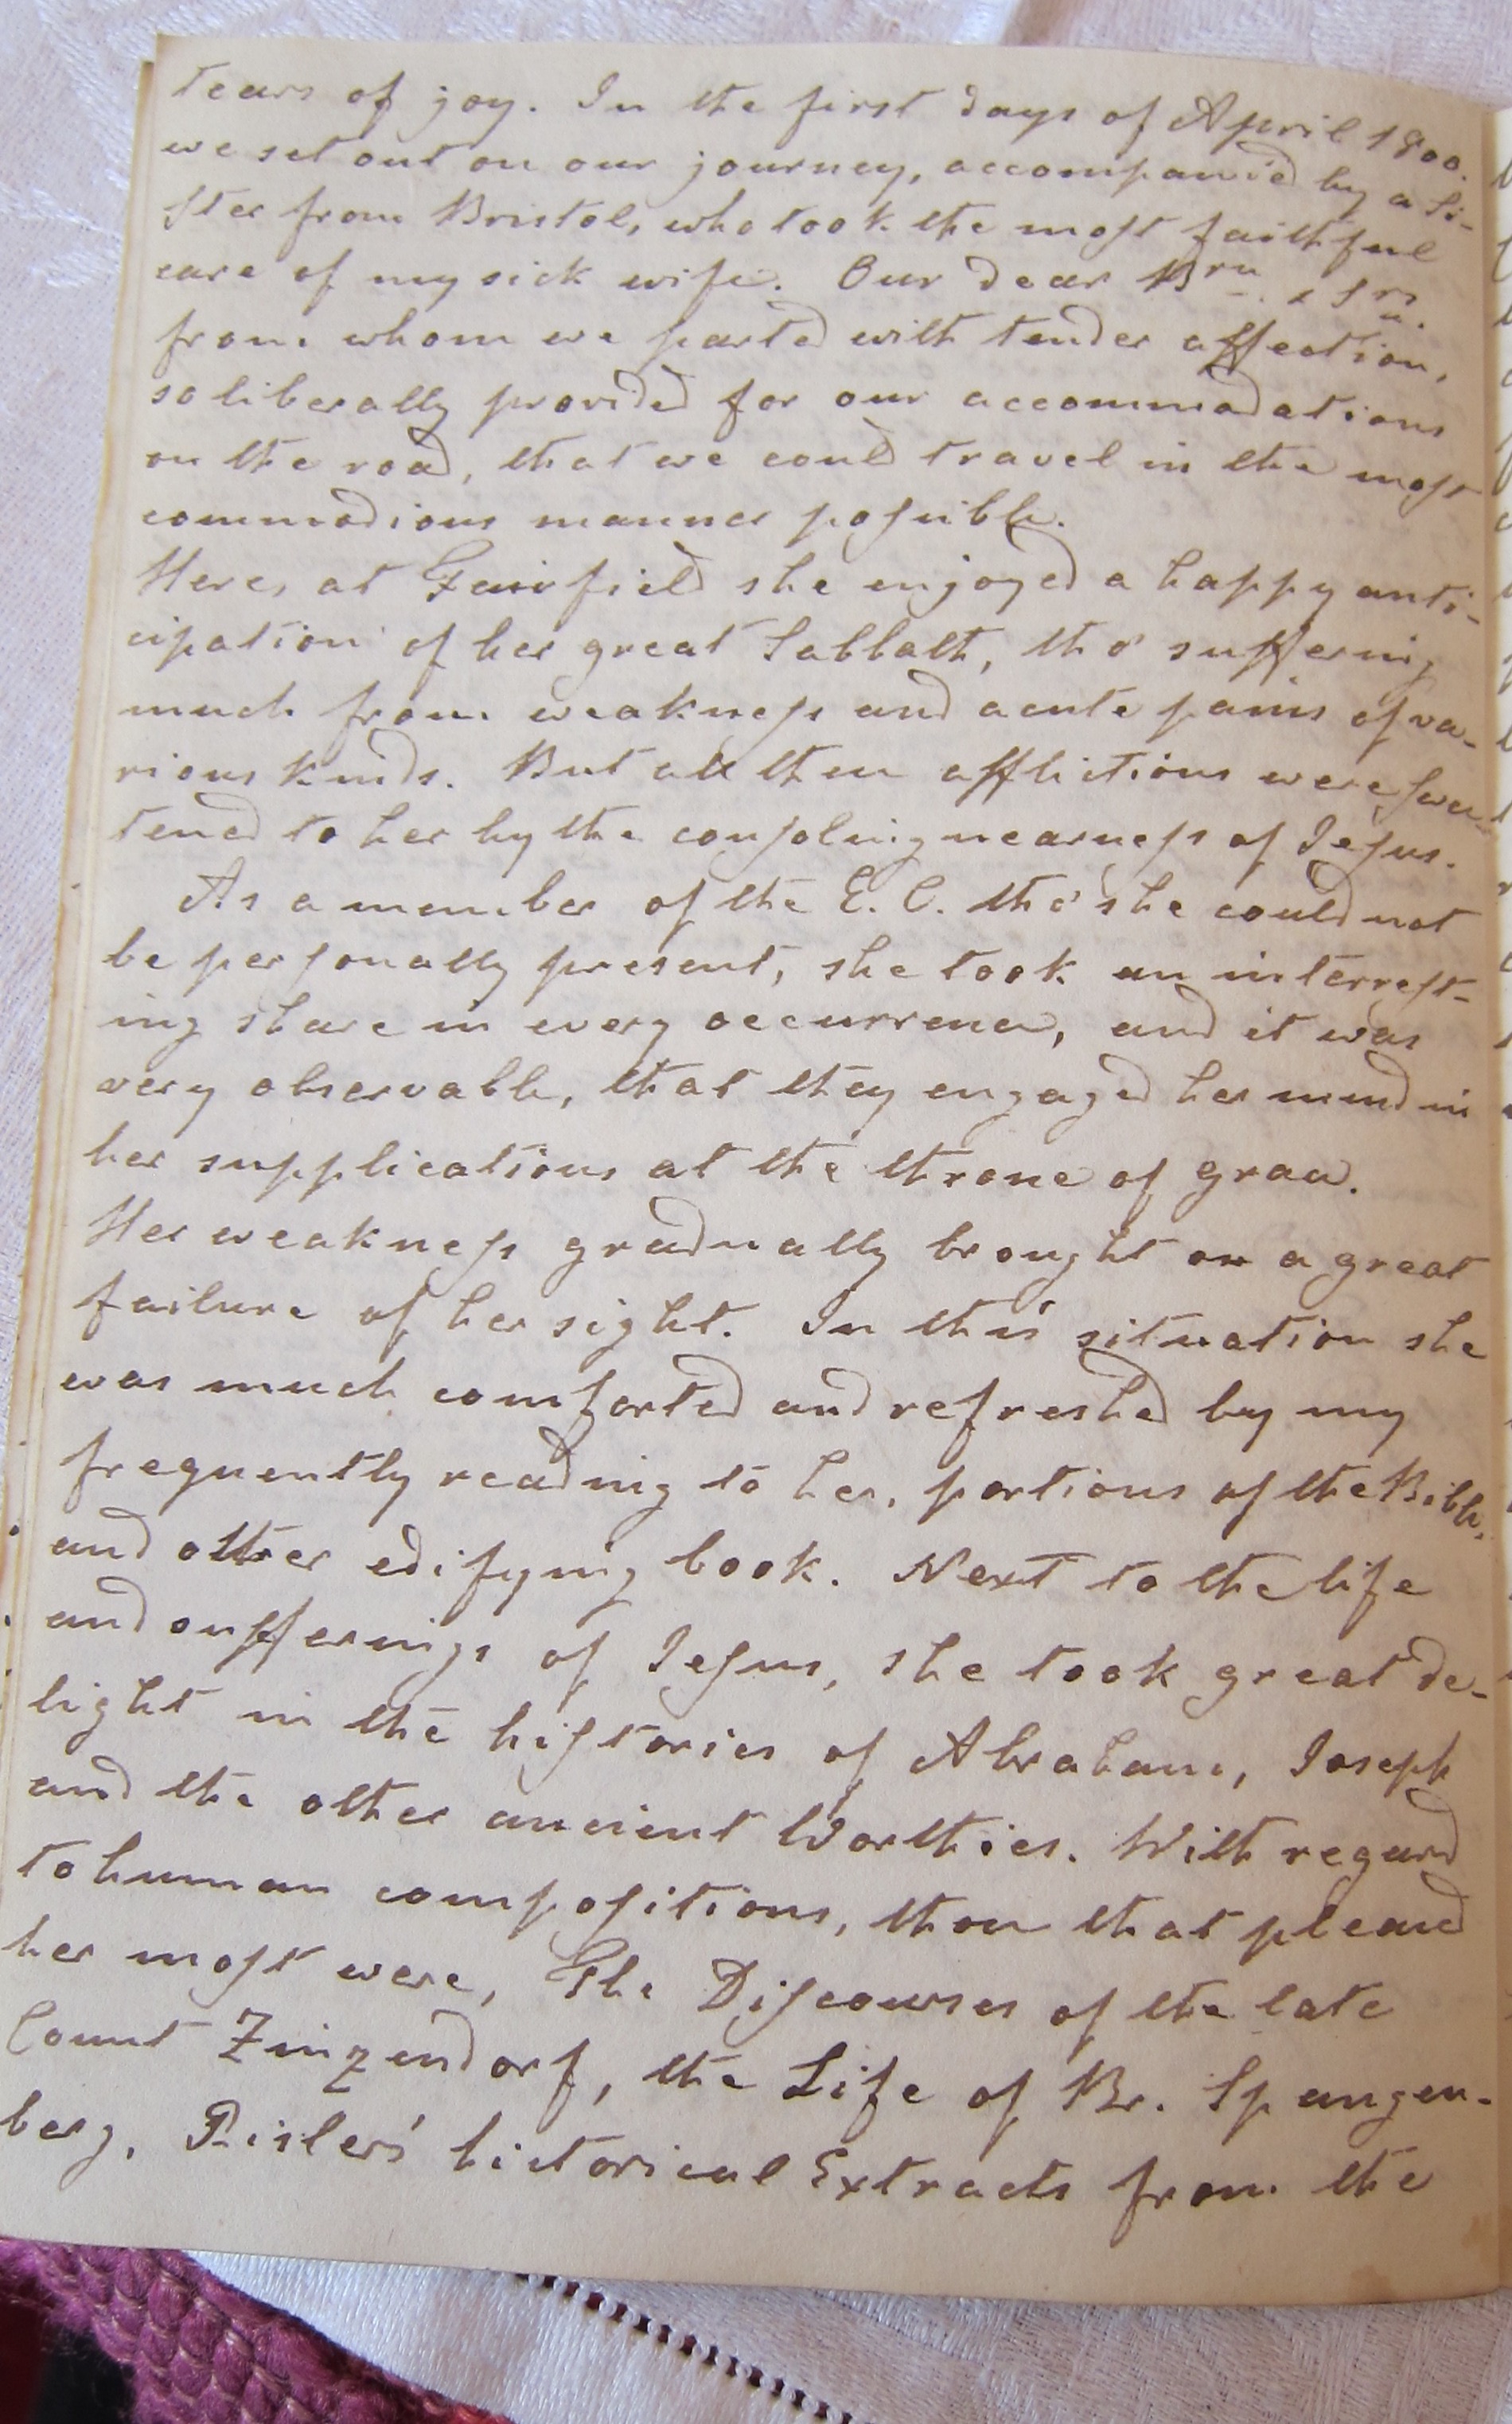 tears of joy. In the first days of April 1800.
we set out on our journey, accompanied by a Si-
ster from Bristol, who took the most faithful
care of my sick wife. Our dear Brn. & Srs.
from whom we parted with tender affection,
so liberally provided for our accommodations
on the road, that we could travel in the most
commodious manner possible.
Here, at Fairfield she enjoyed a happy anti-
cipation of her great Sabbath, tho' suffering
much from weakness and acute pains of va-
rious kinds. But all these afflictions were swee-
tened to her by the consoling nearness of Jesus.
As a member of the E. C. tho' she could not
be personally present, she took an interrest-
ing share in every occurrence, and it was
very observable, that they engaged her mind in
her supplications at the throne of grace.
Her weakness gradually brought on a great
failure of her sight. In this situation she
was much comforted and refreshed by my
frequently reading to her, portions of the Bible,
and other edifying book. Next to the life
and sufferings of Jesus, she took great de-
light in the histories of Abraham, Joseph
and the other ancient Worthies. With regard
to human compositions, those that pleased
her most were, The Discourses of the late
Count Zinzendorf, the Life of Br. Spangen-
berg, Risler's historical Extracts from the